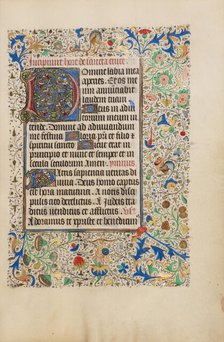 Incipiunt hore de sancta cruce
Domine labia mea
aperies. Et os
meum annunciabit
laudem
Deus in adiu
torium meum in
tende. Domine ad adiuvandum
me festina. Gloria patri et filio et
spiritui sancto Sicut erat in
principio et nunc et semper et in
secula seculorum Amen.
Patris sapiencia veritas di
vina Deus homo captus
est hora matutina. A suis disci
pulis cito derelictus. A iudeis tra
ditus venditus et afflictus.
Adoramus te xpriste et benedicim